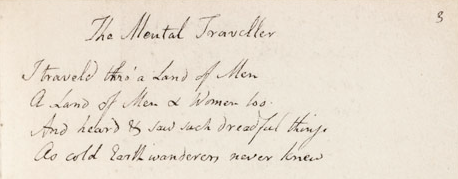 The Mental Traveller
3
I traveld thro' a Land of Men
A Land of Men & Women too
And heard & saw such dreadful things
As cold Earth wanderers never knew